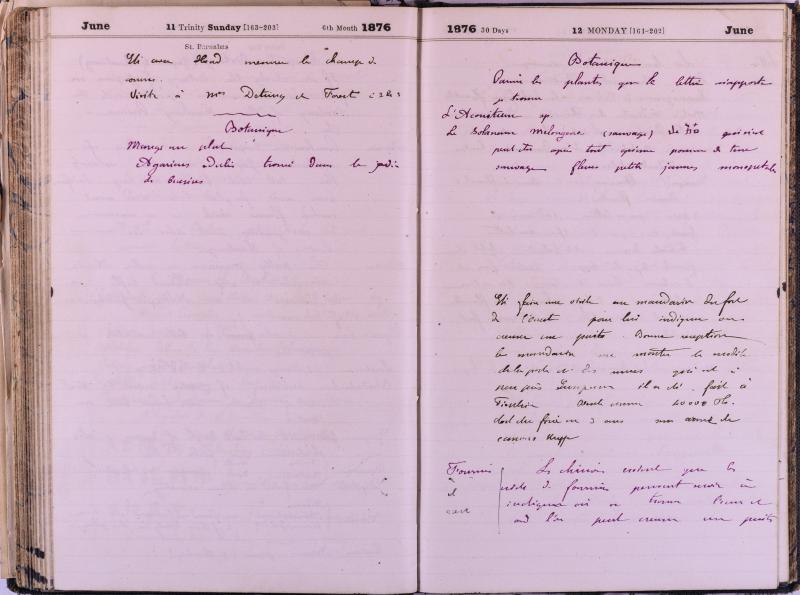 June 11 Trinity Sunday [163-203] 6th Month 1876
St. Barnabas
Eté avec Head mesurer le champ de
courses.
Visite à Mrs Detring et Forest
Botanique
Mangé un plat
Agaricus edulis trouvé dans le jardin
de
1876 30 Days 12 MONDAY [164-202] June
Botanique
Parmi les plantes que le lettré m'apporte
je trouve
L'Aconitum sp.
Le Solanum Melongena (sauvage) de
peut être après tout qu'une pomme de terre
sauvage fleurs petites jaunes monopétales
Eté faire une visite au mandarin du fort
de l'ouest pour lui indiquer où
creuser un puits. Bonne réception
le mandarin me montre le modèle
de la porte et des murs qui est à
peu près Européenne il a été fait à
Tientsin 40000
doit être fini en 3 ans armé de
canons Krupp
Fourmis
et
Les chinois croient que les
nids de fourmis peuvent servir à
indiquer où se trouve l'eau et
où l'on peut creuser un puits